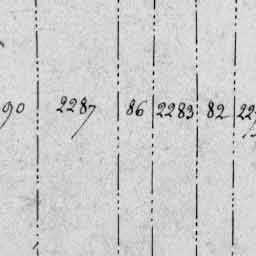 90 2287 86 2283 82